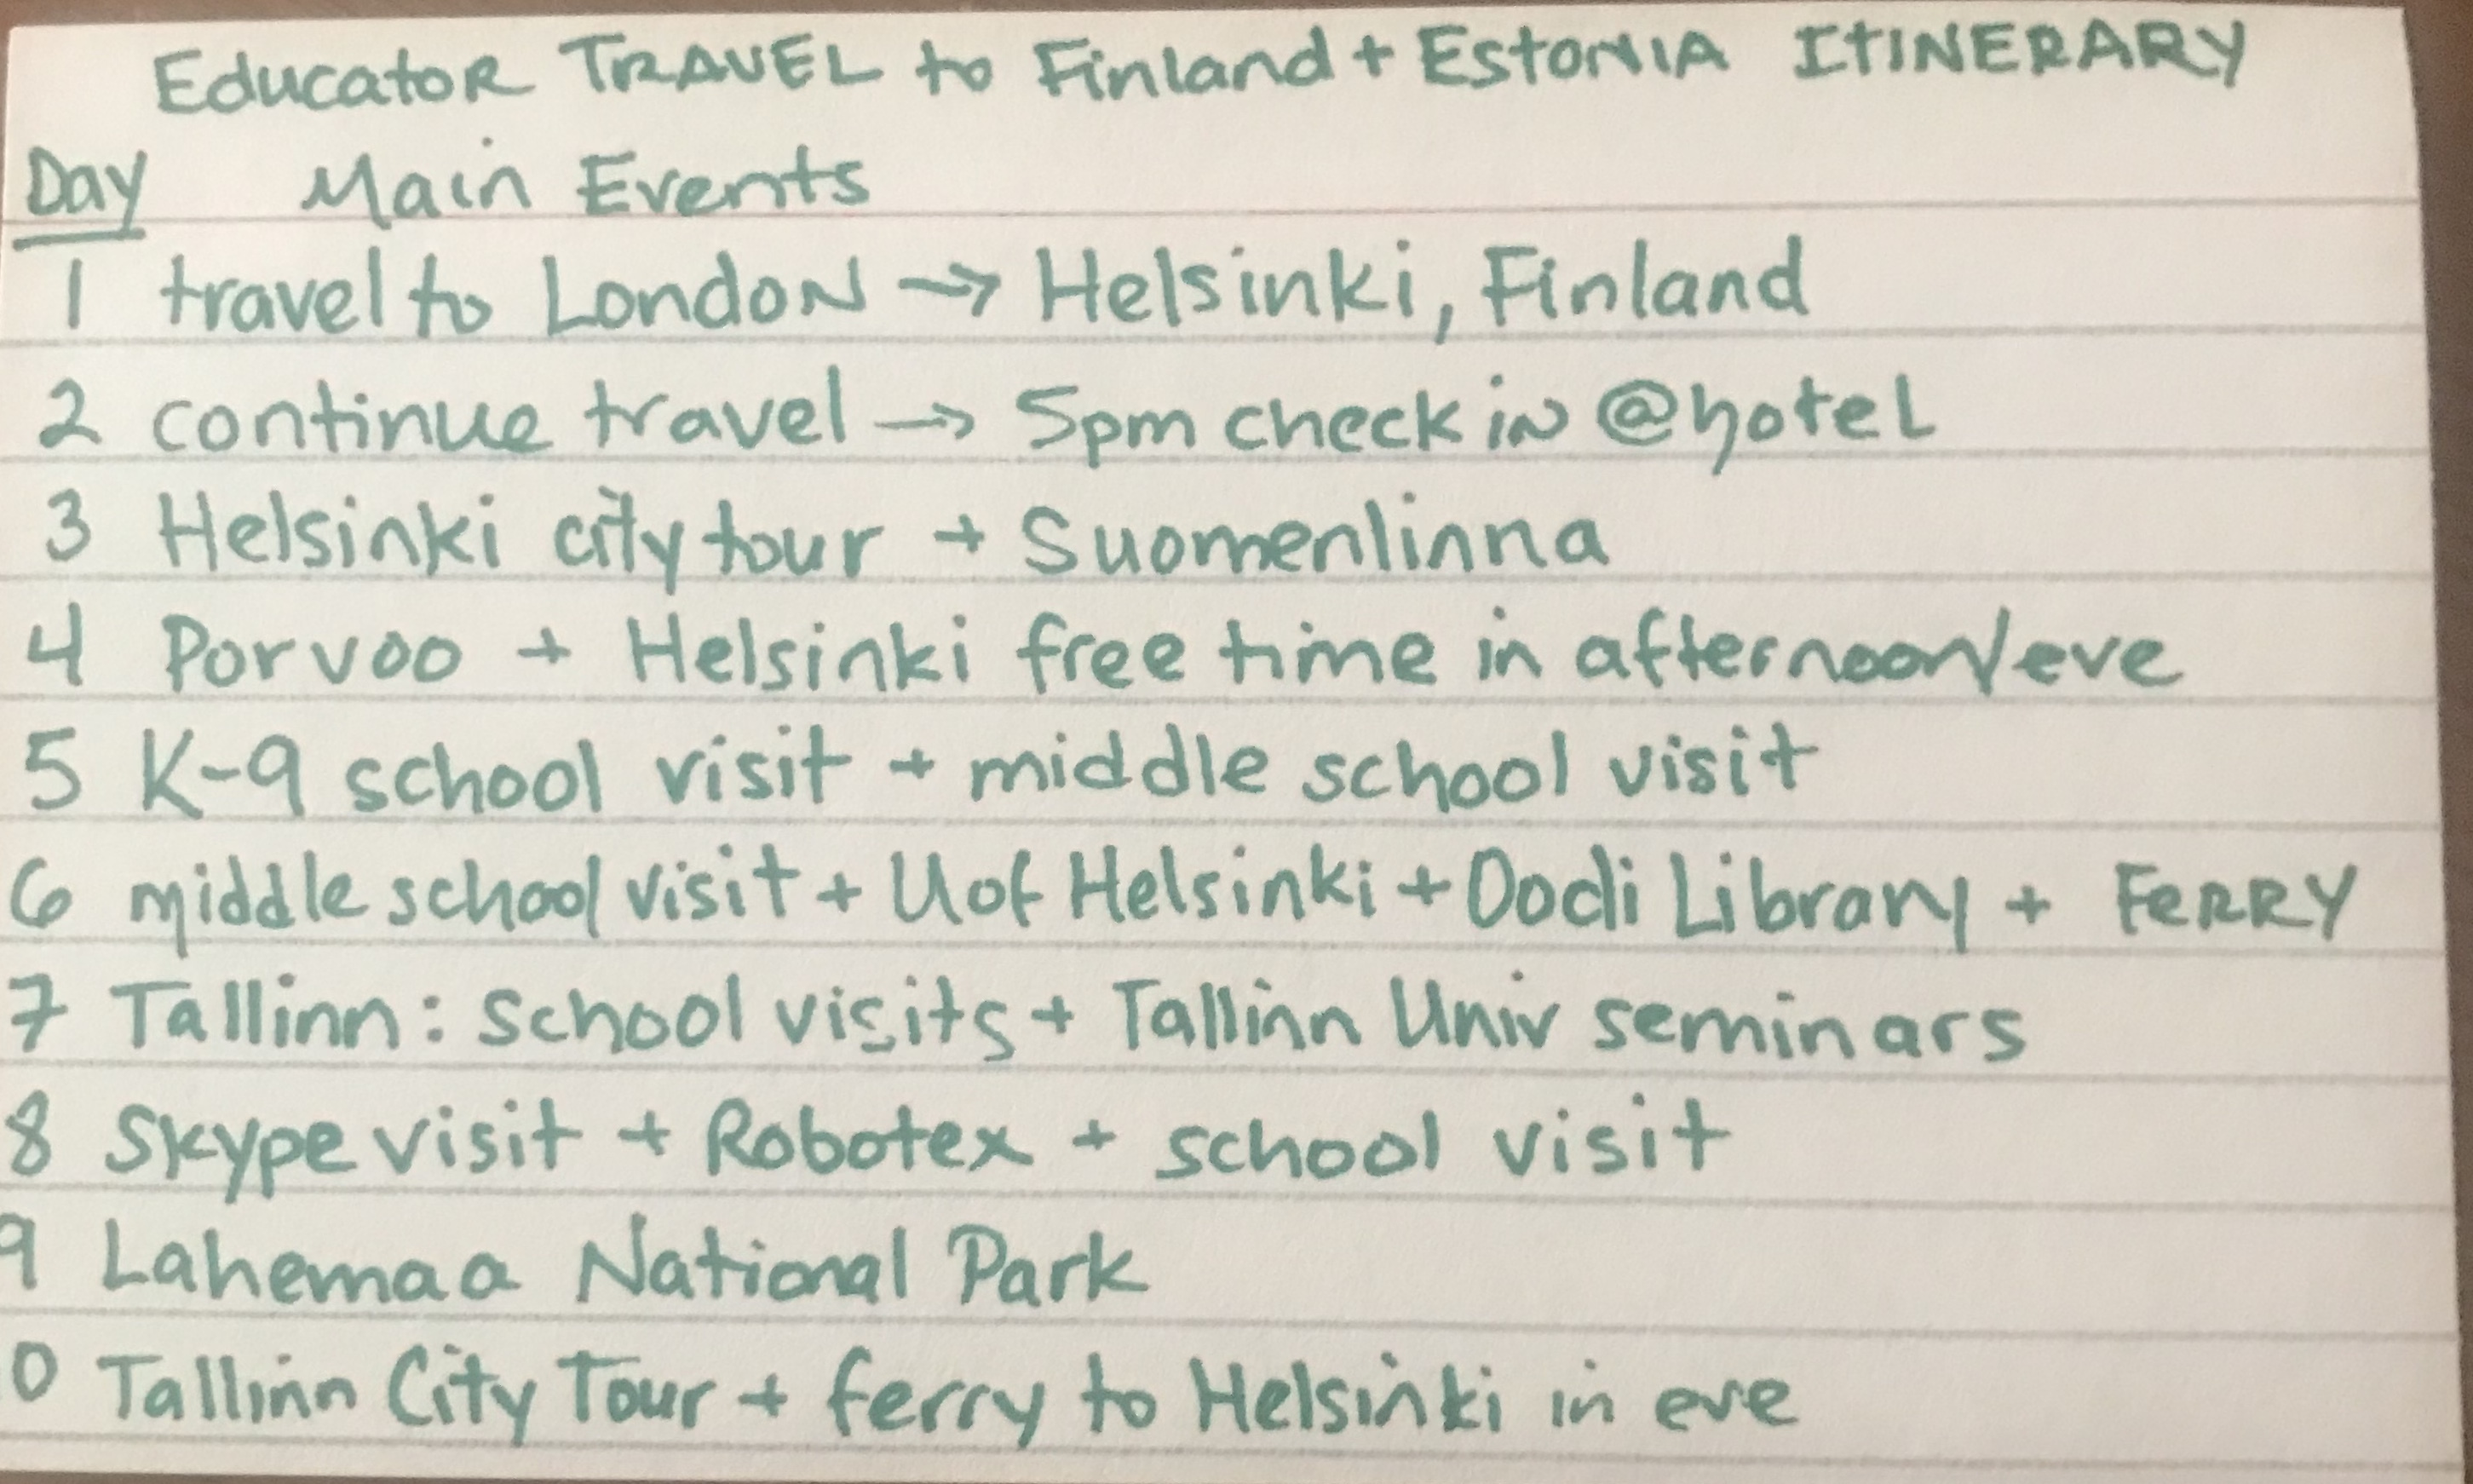 Educator TRAVEL to Finland + Estonia ITINERARY
Day Main Events
1 travel to London → Helsinki, Finland
2 continue travel → 5pm check in @hotel
3 Helsinki city tour + Suomenlinna
4 Porvoo + Helsinki free time in afternoon/eve
5 K-9 school visit + middle school visit
6 middle school visit + U of Helsinki + Oodi Library + FERRY
7 Tallinn: school visits + Tallinn Univ seminars
8 Skype visit + Robotex + school visit
9 Lahemaa National Park
0 Tallinn City Tour + ferry to Helsinki in eve